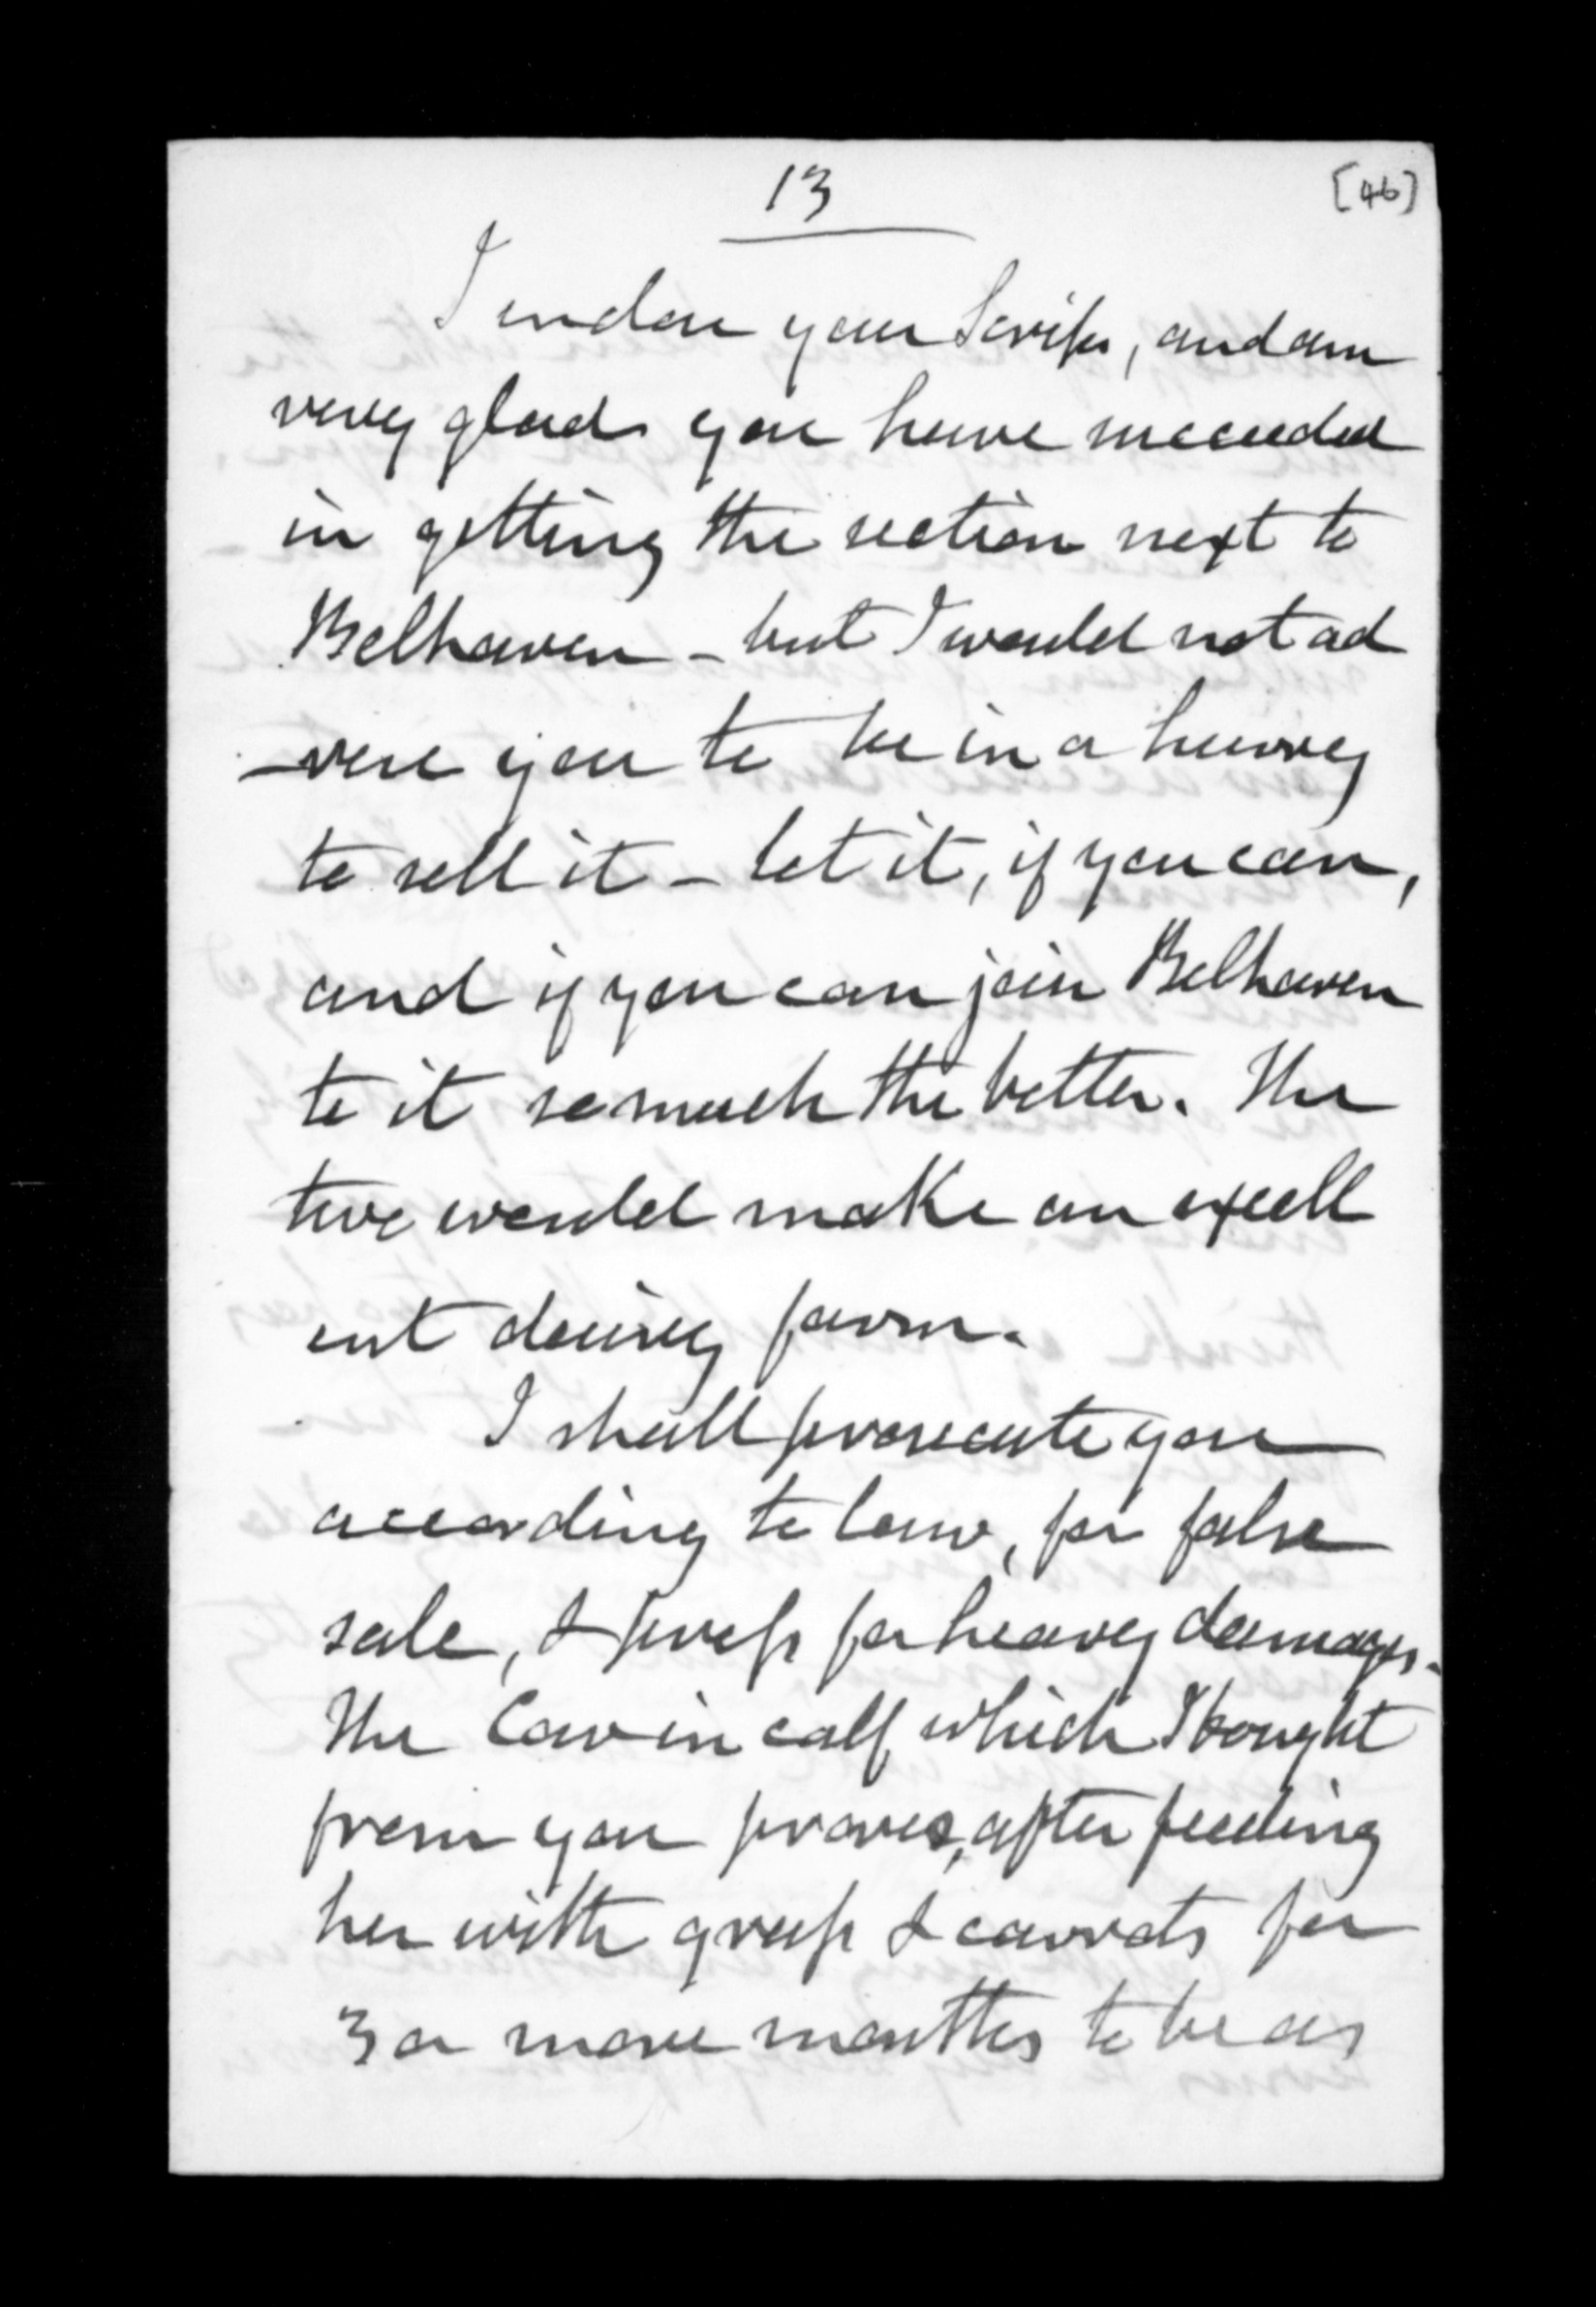 13
[46]
I enclose your Scrips, and am
very glad you have succeeded
in getting the section next to
Belhaven - but I would not ad
-vise you to be in a hurry
to sell it - let it, if you can,
and if you can join Belhaven
to it so much the better. The
two would make an excell
ent dairy farm.
I shall prosecute you
according to law, for false
sale, & press for heavy damages.
The Cow in calf which I bought
from you proves, after feeding
her with grass & carrots for
3 or more months to be as